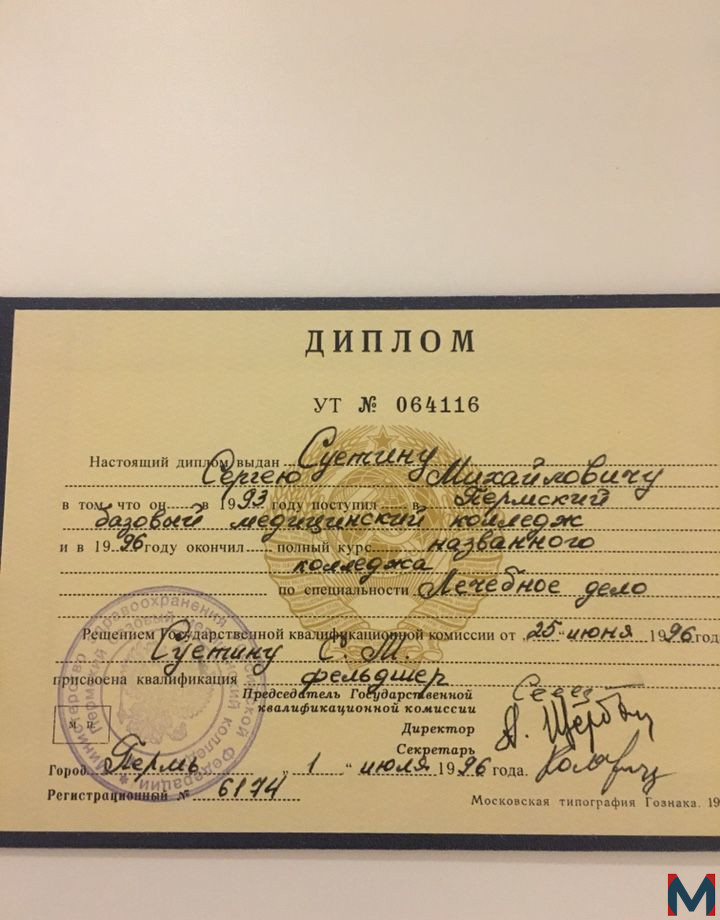 ДИПЛОМ
УТ № 064116
Настоящий диплом выдан Суетину
Сергею Михайловичу
в том что он в 1993 году поступил в Пермский
базовый медицинский колледж
и в 1996 году окончил полный курс названного
колледжа
по специальности Лечебное дело
Решением Государственной квалификационной комиссии от „25“ июня 1996 год
Суетину С. М.
присвоена квалификация фельдшер
Председатель Государственной
квалификационной комиссии
Директор
Секретарь
М. П.
Город Пермь „1“ июля 1996 года.
Регистрационный № 6174
Московская типография Гознака. 19
M